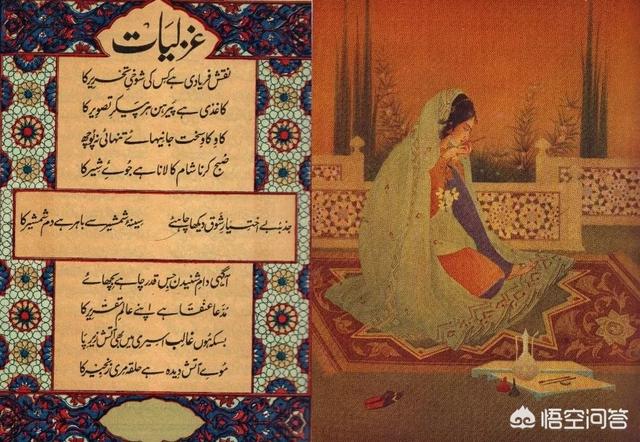 غزلیات
نقش فریادی ہے کس کی شوخیِ تحریر کا
کاغذی ہے پیرہن ہر پیکرِ تصویر کا
کاوِ کاوِ سخت جانیہائے تنہائی نہ پوچھ
صبح کرنا شام کا لانا ہے جوئے شیر کا
جذبۂ بے اختیارِ شوق دیکھا چاہئے سینۂ شمشیر سے باہر ہے دم شمشیر کا
آگہی دامِ شنیدن جس قدر چاہے بچھائے
مدعا عنقا ہے اپنے عالمِ تقریر کا
بسکہ ہوں غالب اسیری میں بھی آتش زیرِ پا
موئے آتش دیدہ ہے حلقہ مری زنجیر کا
悟空问答